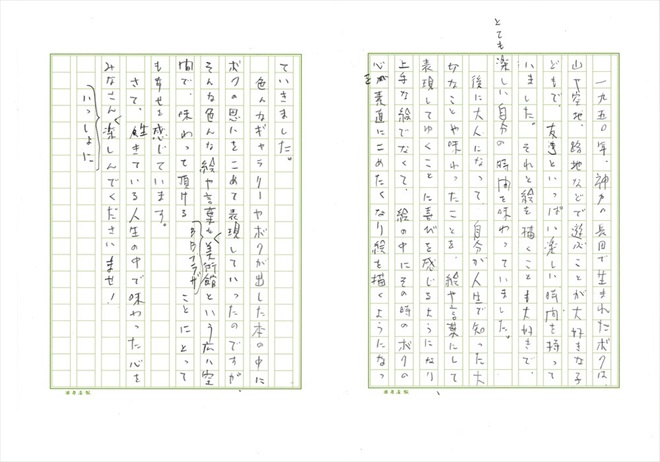 一九五〇年、神戸の長田で生まれたボクは、
山や空地、路地などで遊ぶことが大好きな子
どもで、友達といっぱい楽しい時間を持って
いました。それと絵を描くことも大好きで、
とても楽しい自分の時間を味わっていました。
後に大人になって、自分が人生で知った大
切なことや味わったことを、絵や言葉にして
表現してゆくことに喜びを感じるようになり、
上手な絵でなくて、絵の中にその時のボクの
心を素直にこめたくなり絵を描くようになっ
ていきました。
色んなギャラリーやボクが出した本の中に
ボクの思いをこめて表現していったのですが、
そんな色んな絵や言葉を美術館という広い空
間で、味わって頂けることにとって
BBプラザ
も幸せを感じています。
さて、生きている人生の中で味わった心を
みなさん、楽しんでくださいませ!
いっしょに